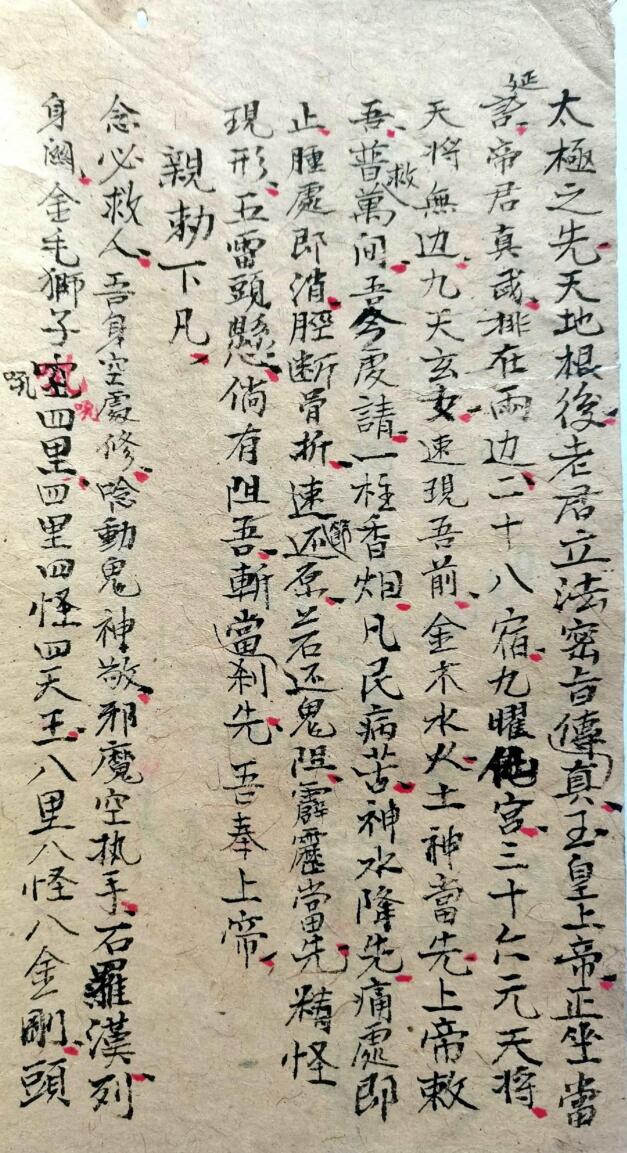 太極之先天地根後老君立法密旨傳真玉皇上帝正坐當
誕帝君真武排在兩边二十八宿九曜宮三十六元天将
天将無边九天玄女速現吾前金木水火土神當先上帝敕
吾普救萬间吾今虔請一柱香烟凡民病苦神水降先痛處即
止腫處即消脛断骨折速还原若还鬼阻霹靂當先精怪
現形五雷頭懸倘有阻吾斬當刹先吾奉上帝
親勅下凡
念必救人吾身空處修唸動鬼神敬邪魔空执手石羅漢列
身闕金毛獅子吼吼四里四里四怪四天王八里八怪八金剛頭